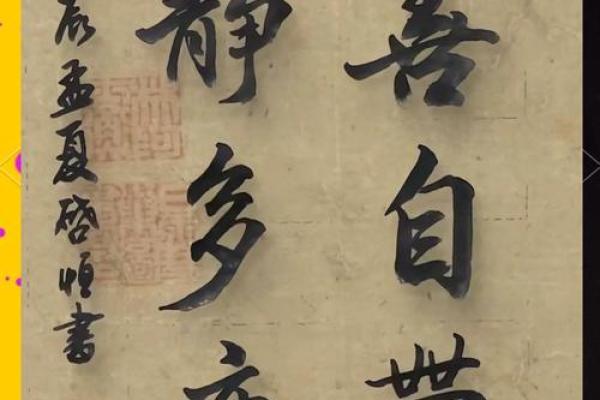 善自
静多
辰孟夏啓恒書